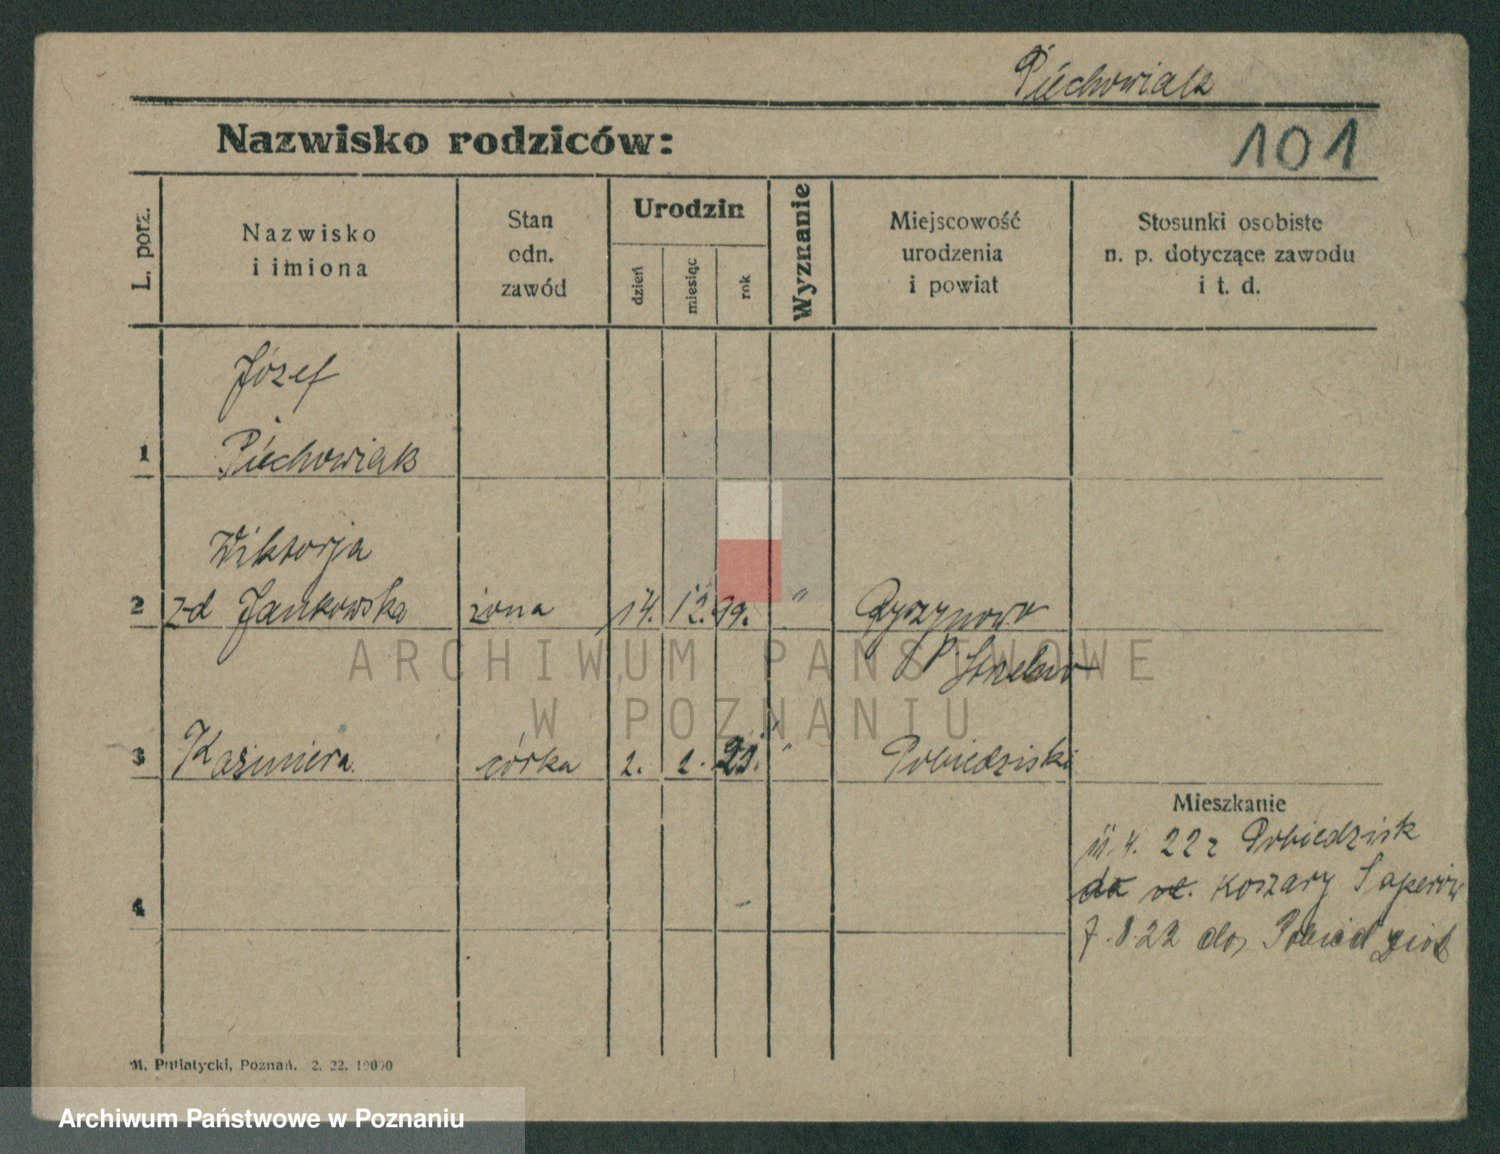 Piechowiak
Nazwisko rodziców:
101
L. porz.
Nazwisko
i imiona
Stan
odn.
zawód
Urodzin
dzień
miesiąc
rok
Wyznanie
Miejscowość
urodzenia
i powiat
Stosunki osobiste
n. p. dotyczące zawodu
i t. d.
Józef
1 Piechowiak
Wiktorja
2 z-d Jankowska żona 14. 12. 99. "
P Strzelno
3 Kazimiera córka 2. 2. " Pobiedziski
Mieszkanie
4. 22 z Pobiedzisk
koszary Saperów
4
7.8.22 do Pobiedzisk
M. Putiatycki, Poznań. 2. 22.
ARCHIWUM PAŃSTWOWE
W POZNANIU
Archiwum Państwowe w Poznaniu